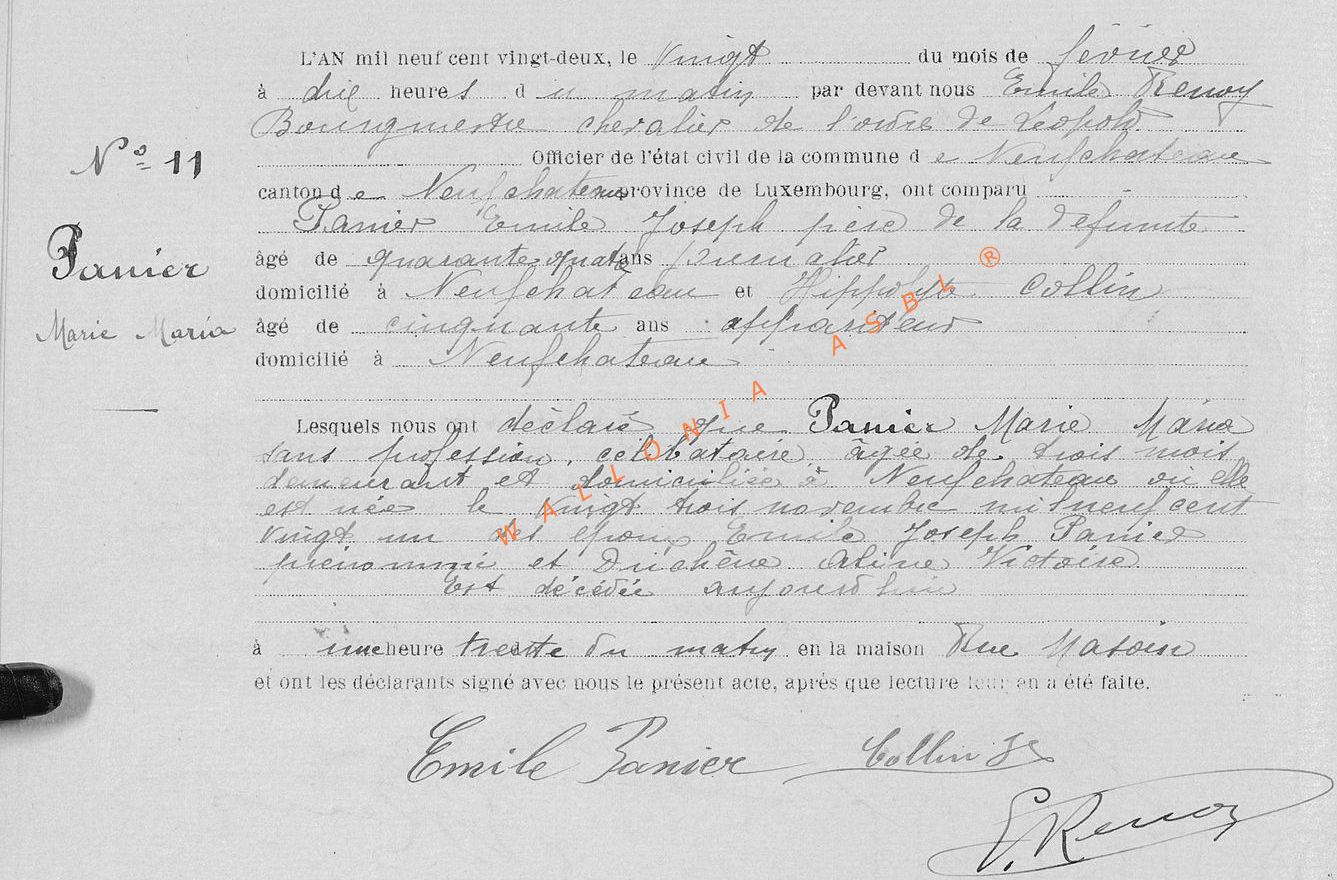 L'AN mil neuf cent vingt-deux, le vingt du mois de février
à dix heures du matin par devant nous Emile Renoy
Bourgmestre chevalier de l'ordre de Léopold
Officier de l'état civil de la commune de Neufchateau
canton de Neufchateau province de Luxembourg, ont comparu
Panier Emile Joseph père de la defunte
âgé de quarante quatre ans
domicilié à Neufchateau et Hippolyte Collin
âgé de cinquante ans appariteur
domicilié à Neufchateau
N° 11
Panier
Marie Maria
Lesquels nous ont déclaré que Panier Marie Maria
sans profession, célibataire âgée de trois mois
demeurant et domiciliée à Neufchateau où elle
est née le vingt trois novembre mil neuf cent
vingt un des époux Emile Joseph Panier
prénommé et Duchêne Aline Victoire
Est décédée aujourd'hui
à une heure trente du matin en la maison Rue Masoin
et ont les déclarants signé avec nous le présent acte, après que lecture leur en a été faite.
Emile Panier Collin
E. Renoy
WALLONIA ASBL ®